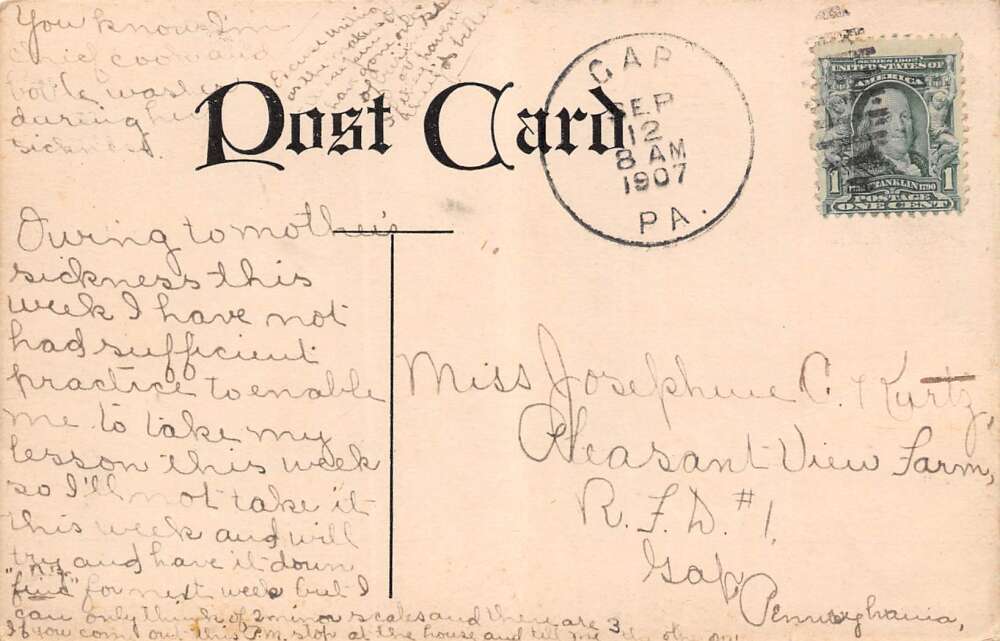 You know I'm
chief cook and
bottle washer
during her
sickness.
Excuse writing
as the
Post Card
GAP
SEP
12
8 AM
1907
PA.
SERIES 1902
UNITED STATES OF
AMERICA
1 FRANKLIN 1790 1
POSTAGE
ONE CENT
Owing to mother's
sickness this
week I have not
had sufficient
practice to enable
me to take my
lesson this week
so I'll not take it
this week and will
try and have it down
"fine" for next week but I
can only think of 2 minor scales and there are 3
If you come out this P.M. stop at the house and tell me the other one
Miss Josephine C. Kurtz,
Pleasant View Farm,
R.F.D. #1,
Gap,
Pennsylvania,